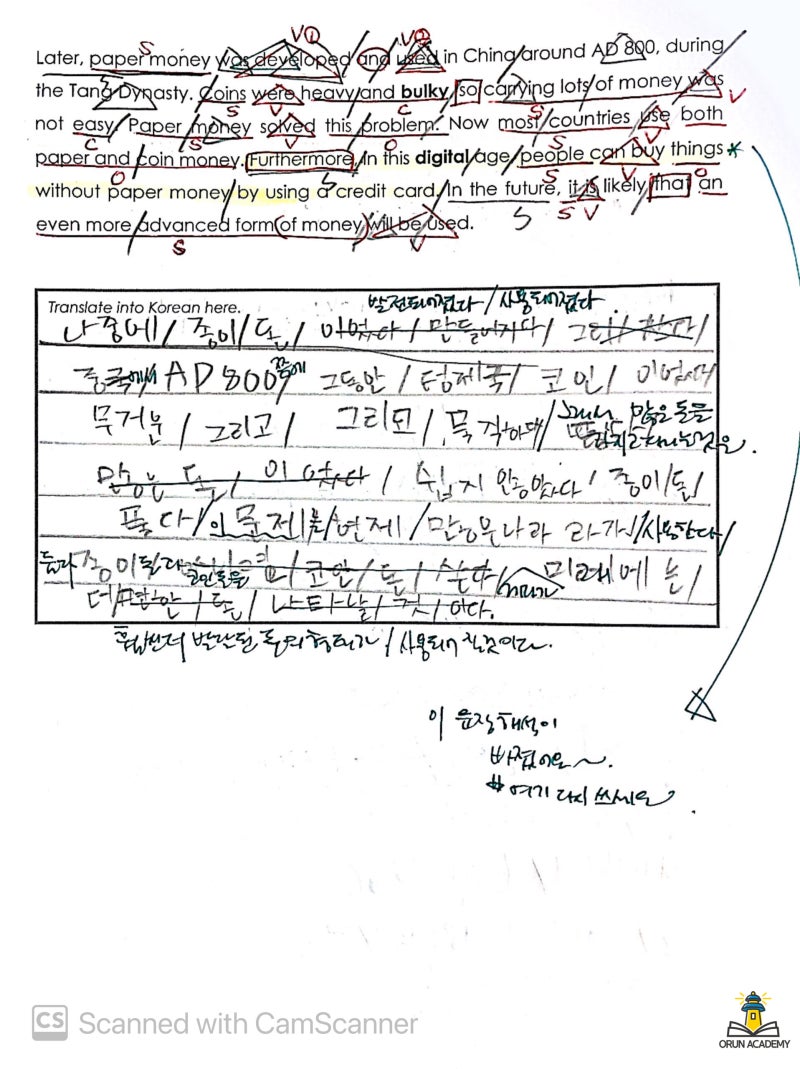 V① V②
S
Later, paper money was developed and used in China around AD 800, during
the Tang Dynasty. Coins were heavy and bulky, so carrying lots of money was
S V C S V
not easy. Paper money solved this problem. Now most countries use both
C S V O S V
paper and coin money. Furthermore, in this digital age, people can buy things *
O S V O
without paper money by using a credit card. In the future, it is likely that an
S V
even more advanced form of money will be used.
S V
Translate into Korean here.
발전되어졌다 / 사용되어졌다
나중에 / 종이 / 돈 / 이었다 / 만들어지다 /
중국에서 AD 800 쯤에 그동안 / 코인 /
무거운 / 그리고 / 그래서 많은 돈을
많은 돈 / 이 었다 / 쉽지 안았다 / 종이 / 돈 /
풀다 / 이 문제를 / 언제 / 많은 나라 / 사용한다 /
둘다 종이 코인돈을 코인 / 돈 / 미래에는 /
돈 / 나타날 / 것 / 이다.
훨씬 더 발전된 돈의 형태가 / 사용되어 질 것이다.
이 문장 해석이
빠졌어요~.
# 여기 다시 쓰세요
CS Scanned with CamScanner
ORUN ACADEMY